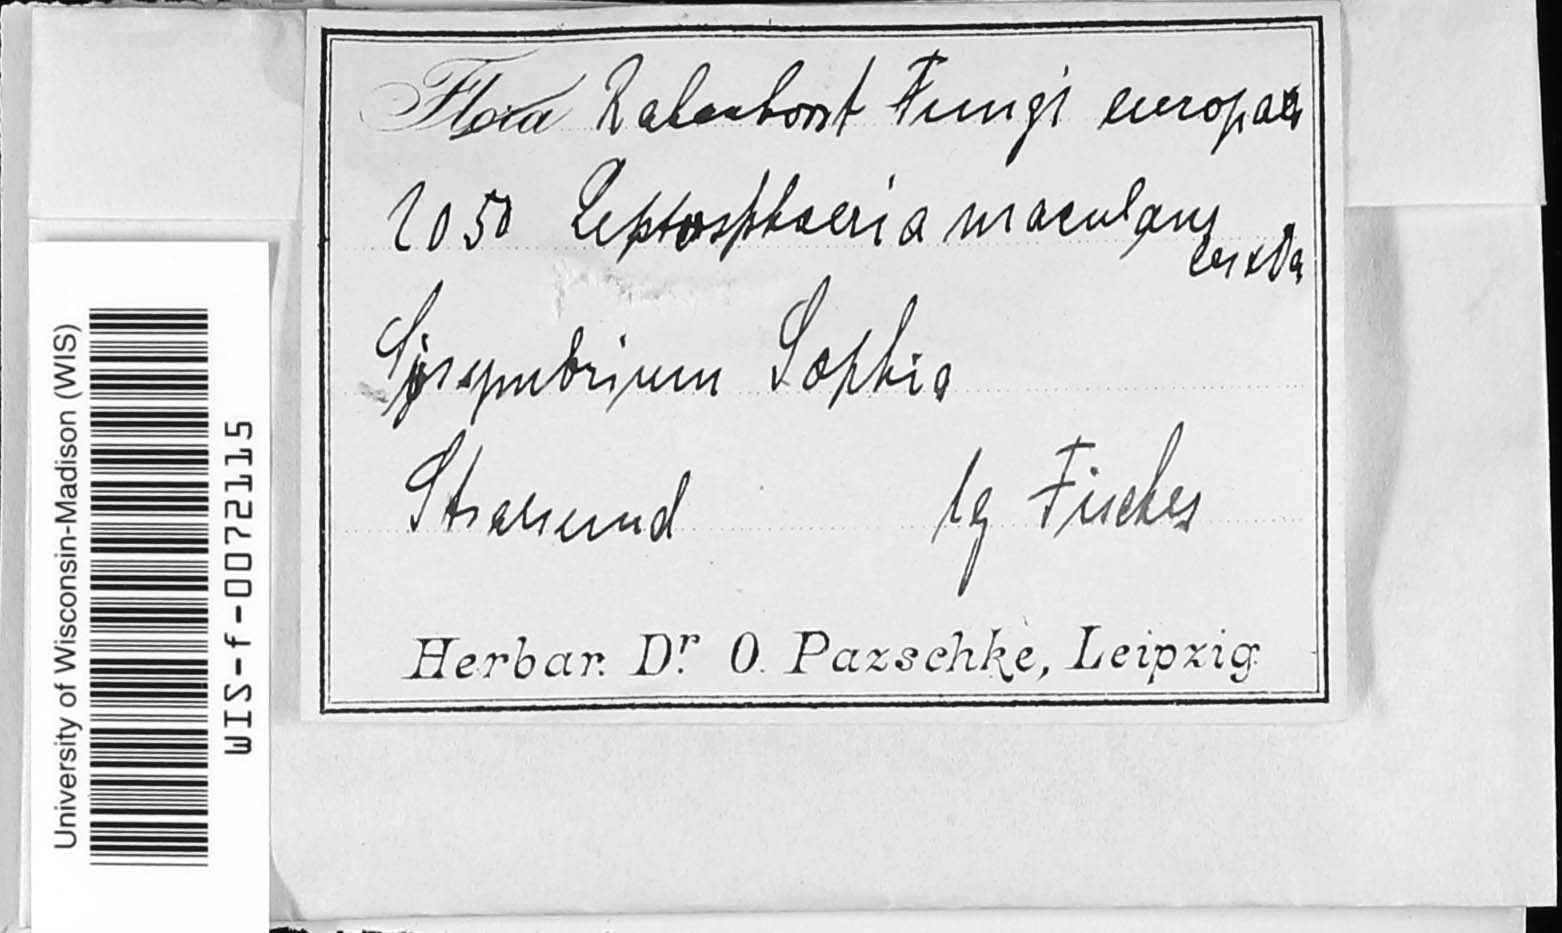 Flora Rabenhorst Fungi europaei
2050 Leptosphaeria maculans
Sisymbrium Sophia
Stralsund lg Fischer
Herbar. Dr. O. Pazschke, Leipzig.
University of Wisconsin-Madison (WIS)
WIS-f-0072115